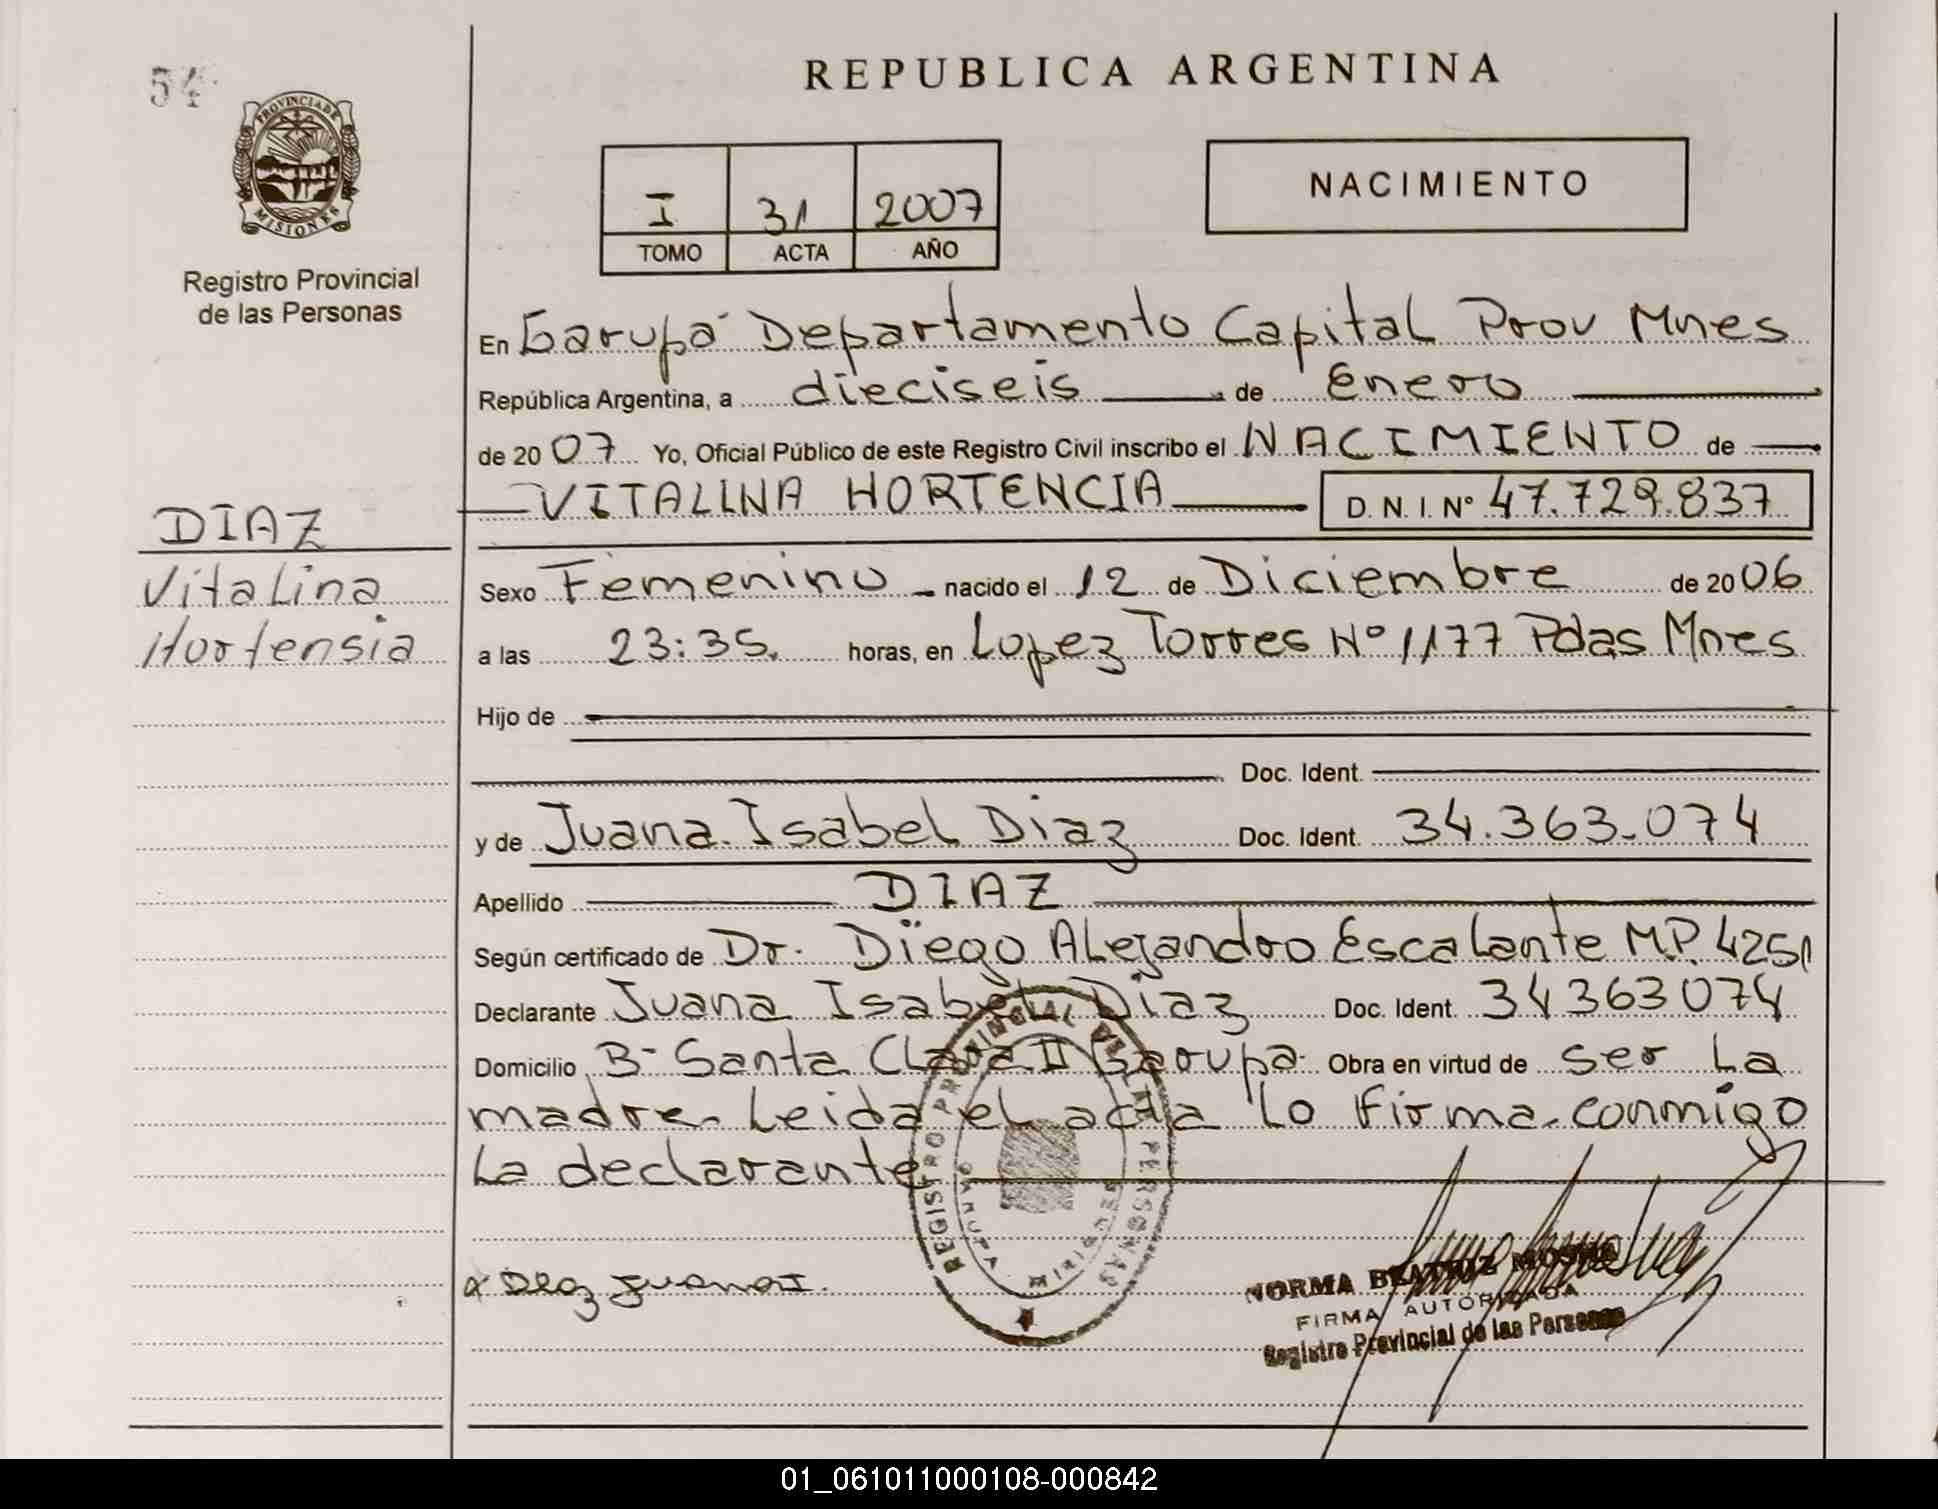 54
REPUBLICA ARGENTINA
PROVINCIA DE
MISIONES
Registro Provincial
de las Personas
I 31 2007
TOMO ACTA AÑO
NACIMIENTO
En Garupá Departamento Capital Prov Mnes
República Argentina, a dieciseis de Enero
de 2007 Yo, Oficial Público de este Registro Civil inscribo el NACIMIENTO de
VITALINA HORTENCIA D. N. I. Nº 47.729.837
DIAZ
Vitalina
Hortensia
Sexo Femenino nacido el 12 de Diciembre de 2006
a las 23:35. horas, en Lopez Torres Nº 1177 Pdas Mnes
Hijo de
Doc. Ident.
y de Juana Isabel Diaz Doc. Ident. 34.363.074
Apellido DIAZ
Según certificado de Dr. Diego Alejandro Escalante MP. 4251
Declarante Juana Isabel Diaz Doc. Ident. 34363074
Domicilio Bº Santa Clara II Garupa Obra en virtud de ser la
madre. Leida el acta lo firma conmigo
la declarante
REGISTRO PROVINCIAL DE LAS PERSONAS
GARUPA
x Diaz Juana I.
NORMA BEATRIZ
FIRMA AUTORIZADA
Registro Provincial de las Personas
01_061011000108-000842